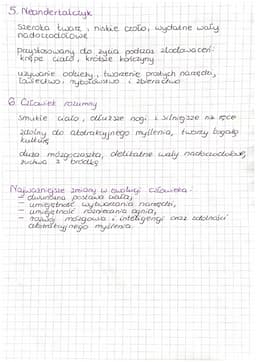 5. Neandertalczyk
szeroka twarz, niskie czoło, wydatne wały
nadoczodołowe
przystosowany do życia podczas zlodowaceń:
krępe ciało, krótkie kończyny
używanie odzieży, tworzenie prostych narzędzi,
łowiectwo, rybołówstwo i zbieractwo
6. Człowiek rozumny
smukłe ciało, dłuższe nogi i silniejsze niż ręce
zdolny do abstrakcyjnego myślenia, tworzy bogatą
kulturę
duża mózgoczaszka, delikatne wały nadoczodołowe,
żuchwa z bródką
Najważniejsze zmiany w ewolucji człowieka:
- dwunożna postawa ciała,
- umiejętność wytwarzania narzędzi,
- umiejętność rozniecania ognia,
- rozwój mózgowia i inteligencji oraz zdolności
abstrakcyjnego myślenia